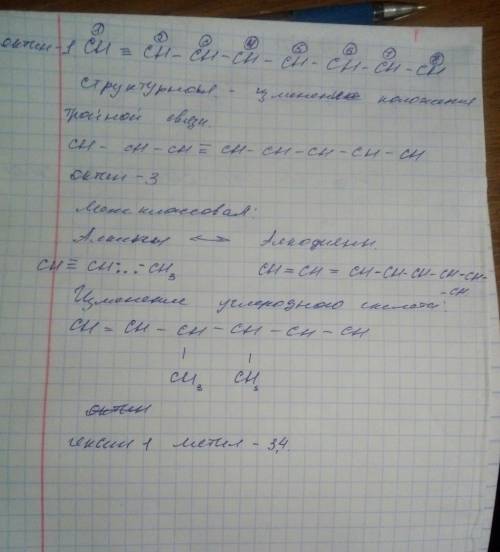 ① ② ③ ④ ⑤ ⑥ ⑦ ⑧
октин-1 CH ≡ CH - CH - CH - CH - CH - CH - CH
Структурная - изменение положения
тройной связи.
CH - CH - CH ≡ CH - CH - CH - CH - CH
октин -3
Межклассовая:
Алкины ↔ Алкодиены
CH ≡ CH ... - CH3 CH = CH = CH - CH - CH - CH - CH-
-CH
Изменение углеродного скелета:
CH = CH - CH - CH - CH - CH
CH3 CH3
октин
гексин 1 метил - 3,4.